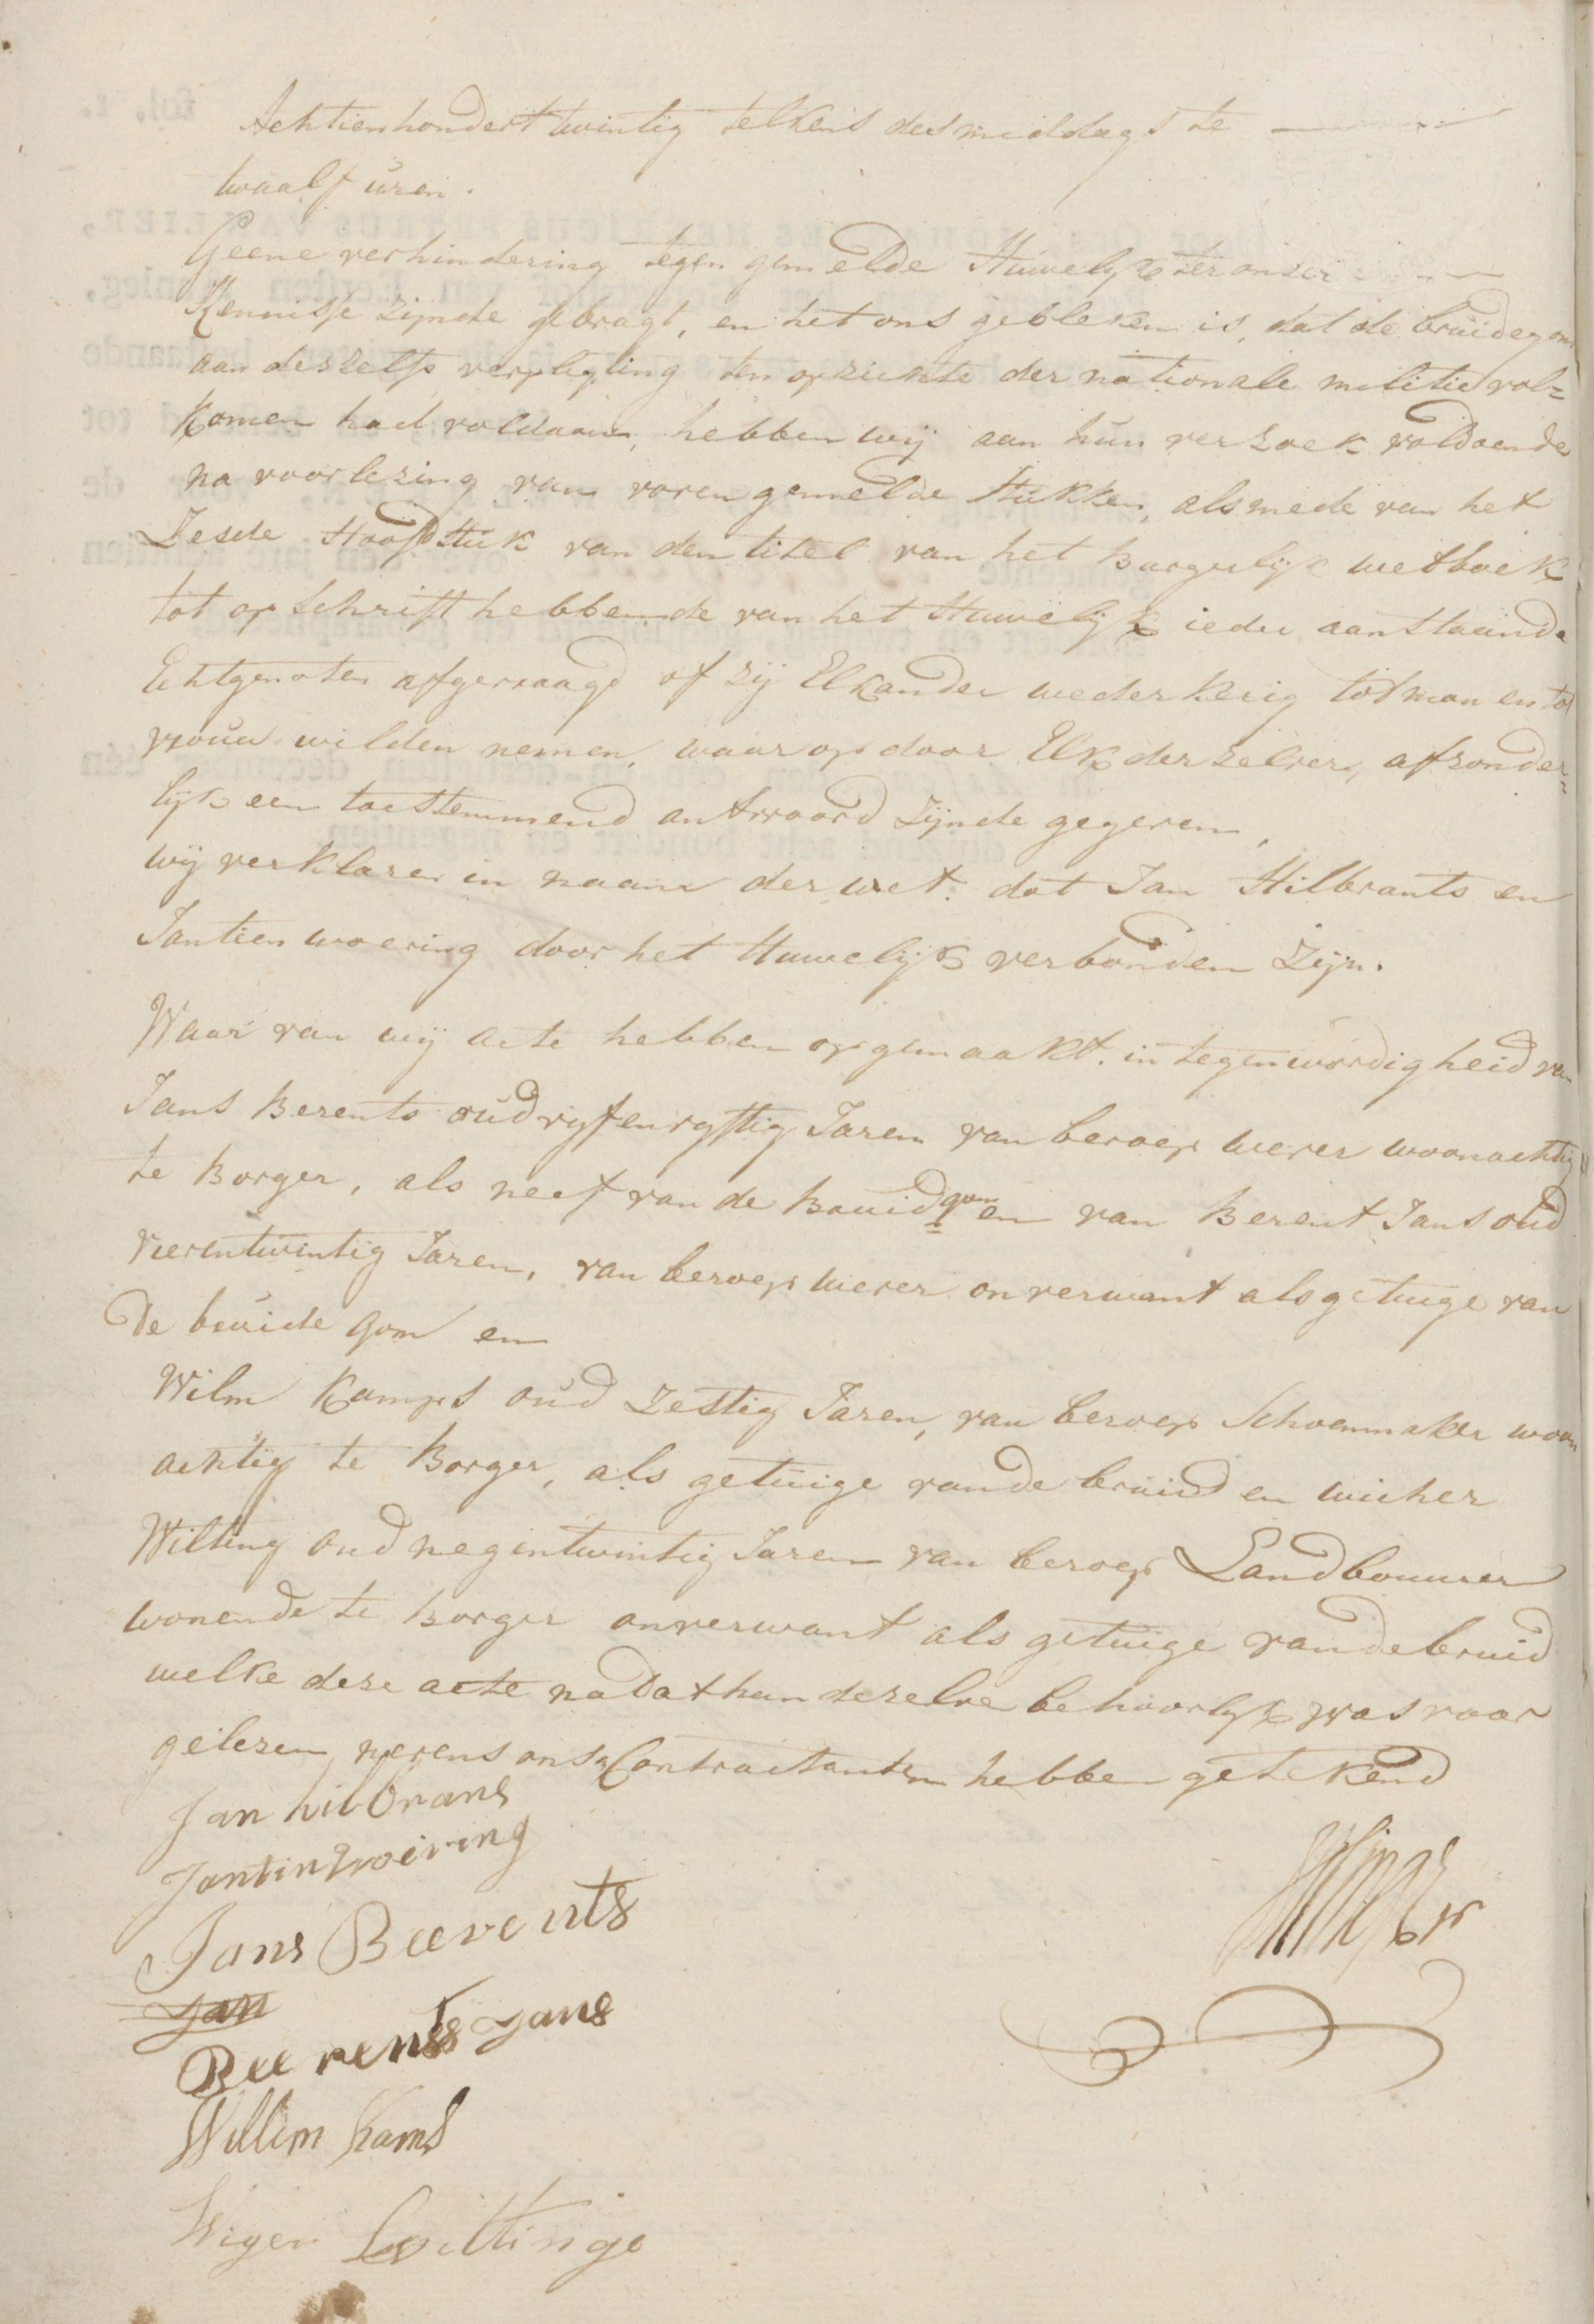 Achtienhondert twintig telkens des middags te
twaalf uren.
Geene verhindering tegen gemelde Huwelijk ter onser
Kennisse zijnde gebragt, en het ons gebleken is, dat de bruidegom
aan deszelfs verpligting ten opzichte der nationale militie vol=
Komen had voldaan, hebben wij aan hun verzoek voldoende
na voorlezing van voren gemelde stukken, alsmede van het
Zesde Hoofdstuk van den titel van het Burgerlijk wetboek
tot opschrift hebbende van het Huwelijk ieder aanstaande
Echtgenoten afgevraagd of zij Elkander wederkerig tot man en tot
vrouw wilden nemen, waarop door Elk derzelver, afzonder=
lijk een toestemmend antwoord zijnde gegeven,
wij verklaren in naam der wet. dat Jan Hilbrants en
Jantien woering door het Huwelijk verbonden zijn.
Waar van wij acte hebben opgemaakt. in tegenwordigheid van
Jans Berents oud vyfenvyftig Jaren van beroep wever woonachtig
te Borger, als neef van de Bruidgom en van Berent Jans oud
vierentwintig Jaren, van beroep wever onverwant als getuige van
De bruidegom en
Wilm Kamps oud Zestig Jaren, van beroep Schoenmaker woon
achtig te Borger, als getuige van de bruid en wicher
Wilting oud negentwintig Jaren van beroep Landbouwer
wonende te Borger onverwant als getuige van de bruid
welke deze acte nadat hun dezelve behoorlyk was voor
gelezen nevens ons & Contractanten hebben getekend
Jan hilbrans
Jantin woiring
Jans Beerents
Jan
Beerents Jans
Willim Kams
Wiger Wiltinge